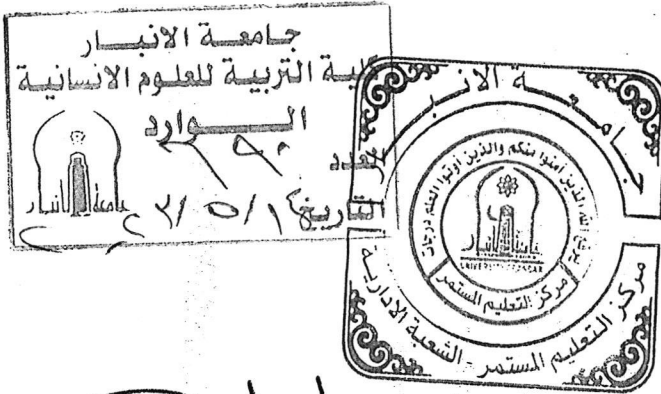 جامعة الانبار
كلية التربية للعلوم الانسانية
الوارد
العدد
التاريخ
جامعة الانبار
جامعة الانبار
يرفع الله الذين آمنوا منكم والذين أوتوا العلم درجات
جامعة الانبار
UNIVERSITY OF ANBAR
مركز التعليم المستمر
مركز التعليم المستمر - الشعبة الادارية